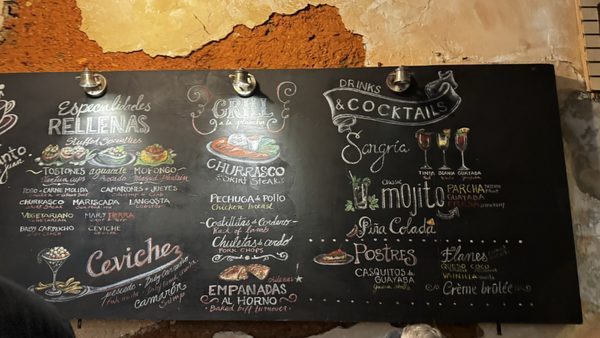 Especialidades
RELLENAS
Stuffed Specialties
TOSTONES aguacate MOFONGO
Avocado
POLLO CARNE MOLIDA CAMARONES JUEYES
CHURRASCO MARISCADA LANGOSTA
VEGETARIANO MAR Y TIERRA
BABY CARRUCHO CEVICHE
Ceviche
pescado
camarón
shrimp
GRILL
a la plancha
CHURRASCO
Skirt Steak
PECHUGA de Pollo
Chicken breast
Costillitas de Cordero
Rack of lamb
Chuletas de cerdo
PORK CHOPS
EMPANADAS
AL HORNO
Baked beef turnover
DRINKS
& COCKTAILS
Sangría
TINTA BLANCA GUAYABA
CLASSIC
mojito
PARCHA
GUAYABA
FRESA
Piña Colada
POSTRES
CASQUITOS de
GUAYABA
Guava shells
Flanes
QUESO COCO
VAINILLA
Crème brûlée